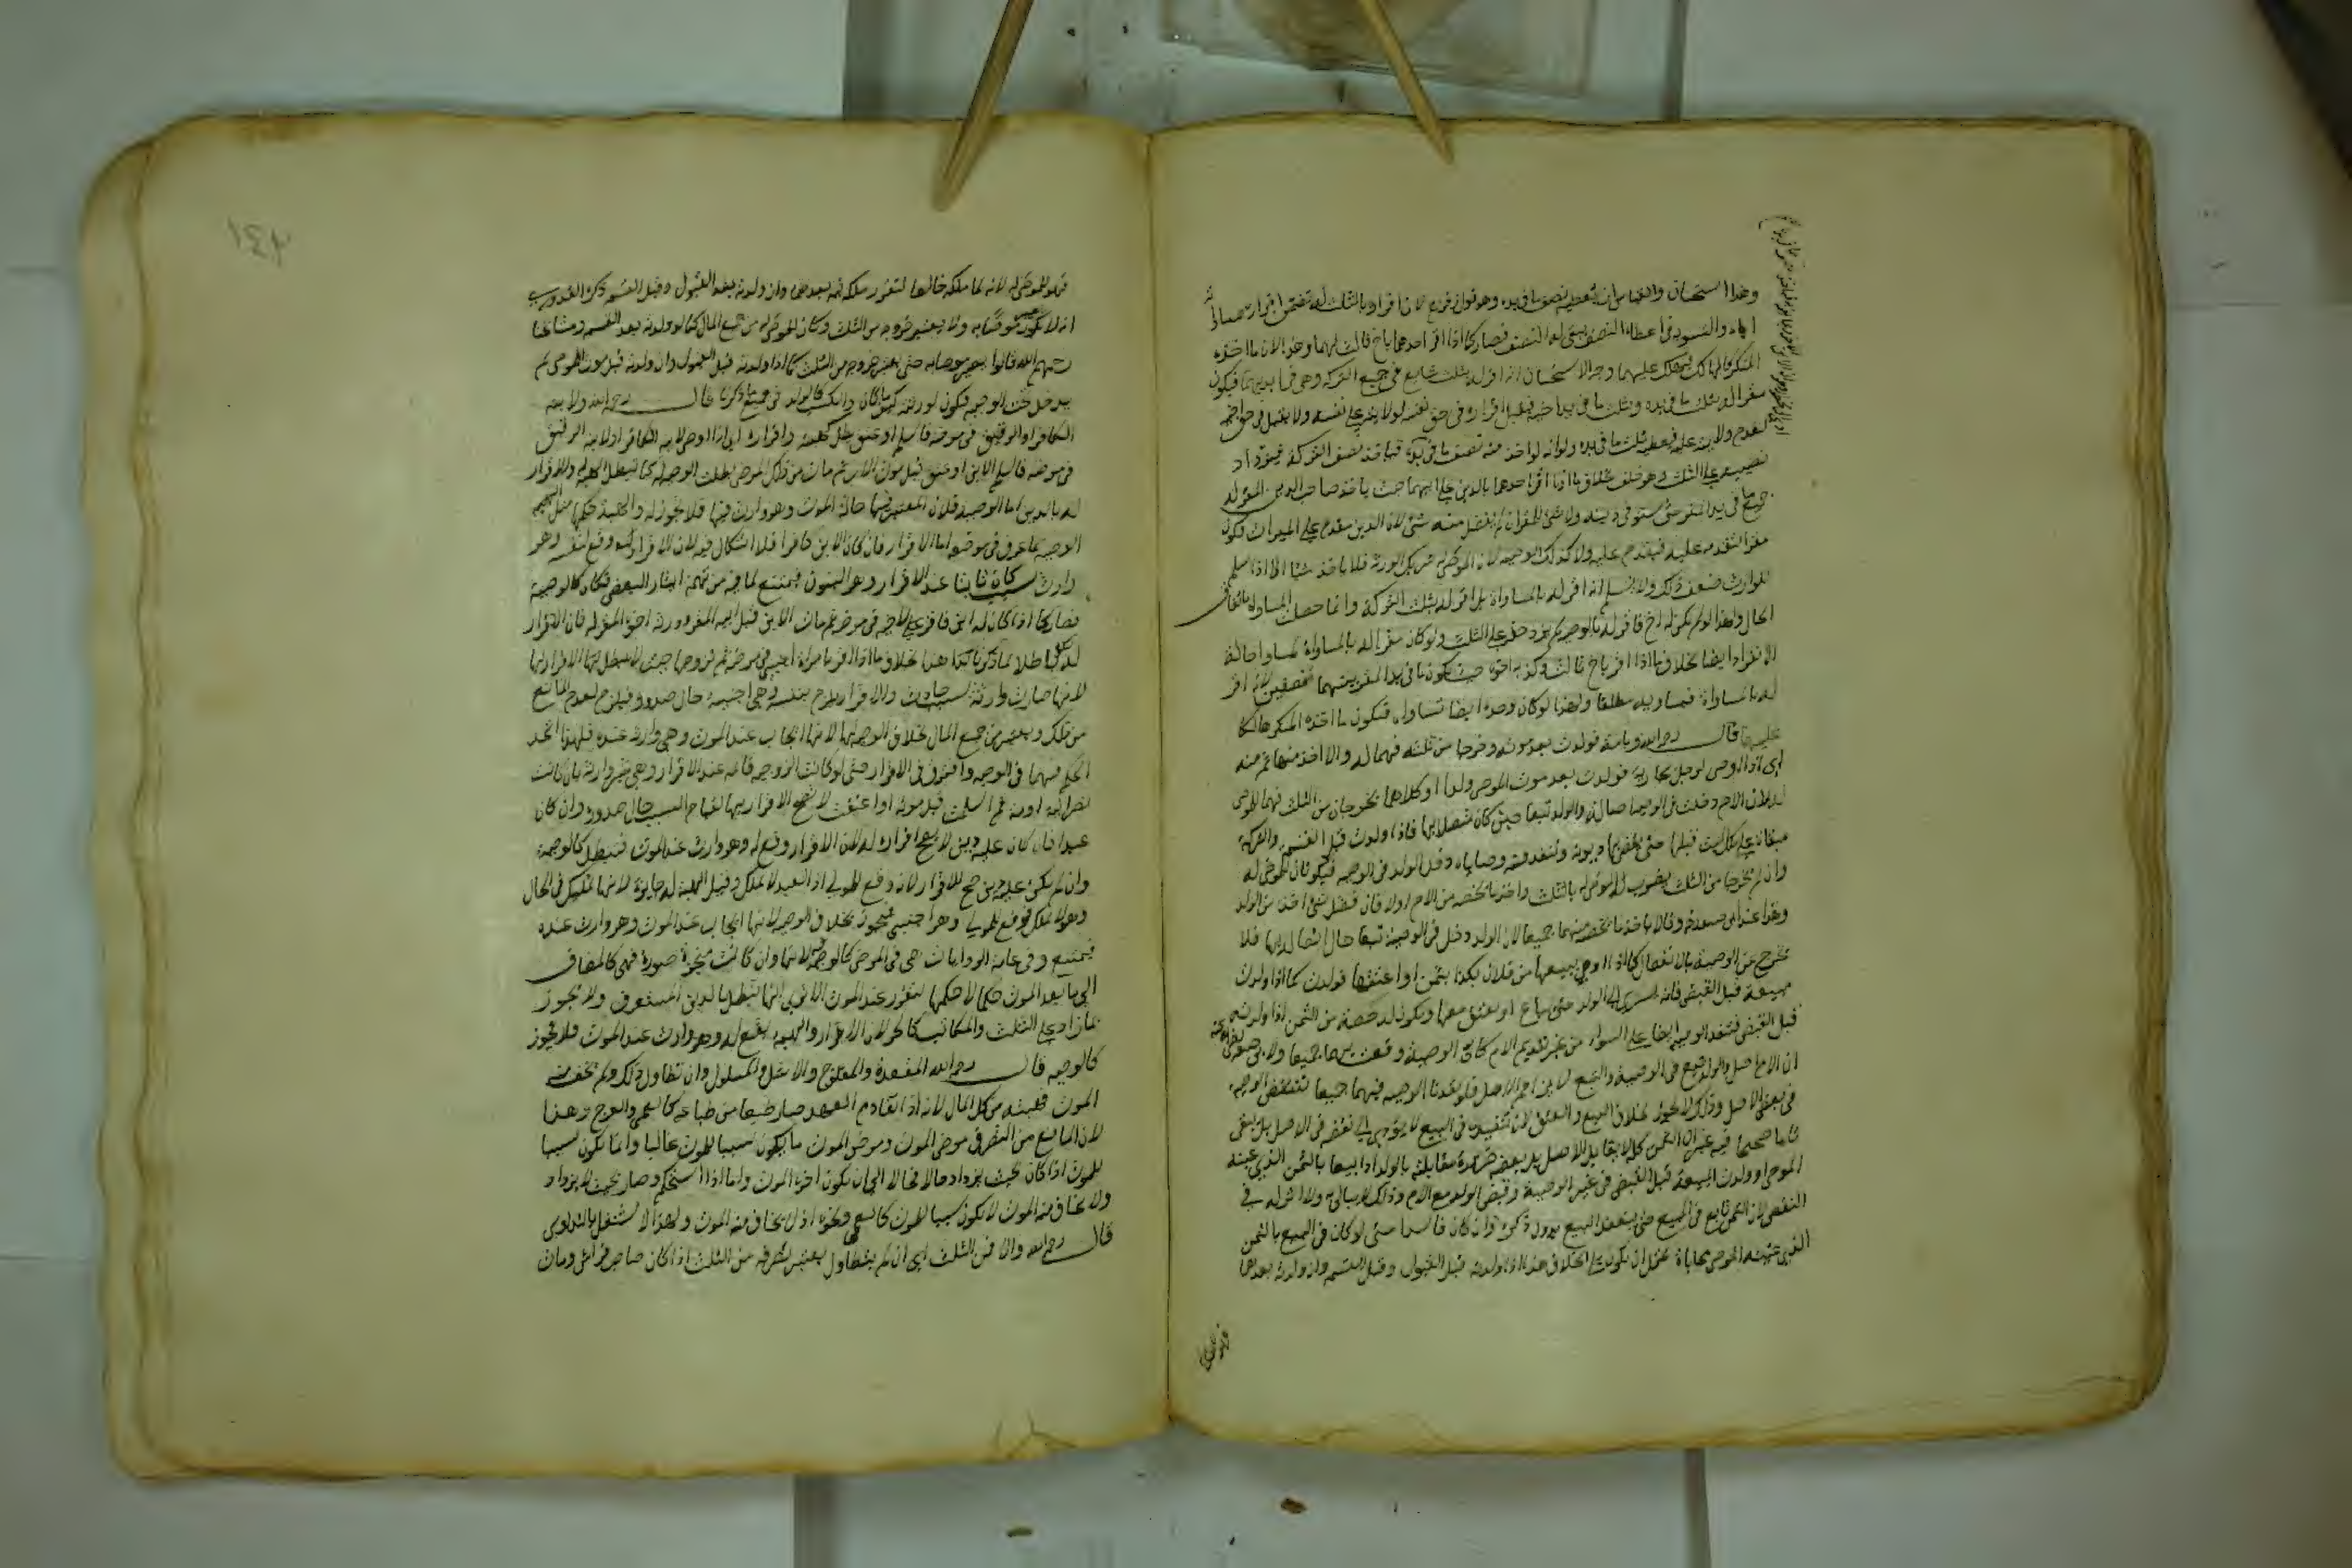 وهذا استحسان والقياس ان يعطيه نصف ما في يده وهو قول زفر لان اقراره بالثلث له تضمن اقراره بمساواته
اياه والتسوية في اعطاء النصف ليبقى له النصف فصار كما اذا اقر احدهما باخ ثالث لهما وهذا لان ما اخذه
المنكر كالهالك فيهلك عليهما وجه الاستحسان انه اقر له بثلث شايع في جميع التركة وهي في ايديهما فيكون
مقرا له بثلث ما في يده وبثلث ما في يد اخيه فيقبل اقراره في حق نفسه لولايته على نفسه ولا يقبل في حق اخيه
لعدم ولايته عليه فيعطيه ثلث ما في يده ولانه لو اخذ منه نصف ما في يده فياخذ نصف التركة فيزداد
نصيبه على الثلث وهو خلف بخلاف ما اذا اقر احدهما بالدين على ابيهما حيث ياخذ صاحب الدين المقر له
جميع ما في يد المقر حتى يستوفي دينه ولا شئ للمقر ان لم يفضل منه شئ لان الدين مقدم على الميراث فيكون
مقرا بتقدمه عليه فيقدم عليه ولا كذلك الوصية لان الموصى له شريك الورثة فلا ياخذ شيئا الا اذا سلم
للوارث ضعف ذلك ولا نسلم انه اقر له بالمساواة بل اقر له بثلث التركة وانما حصلت المساواة باتفاق
الحال ولهذا لو لم يكن له اخ فاقر له بالوصية لم يزد حقه على الثلث ولو كان مقرا له بالمساواة لساواه حالة
الانفراد ايضا بخلاف ما اذا اقر باخ ثالث وكذبه اخوه حيث يكون ما في يد المقر بينهما نصفين لانه اقر
له بالمساواة فيساويه مطلقا ولهذا لو كان وحده ايضا تساويا فيكون ما اخذه المنكر هالكا
عليهما قال رحمه الله وبامة فولدت بعد موته وخرجا من ثلثه فهما له والا اخذ منها ثم منه
اي اذا اوصى لرجل بجارية فولدت بعد موت الموصي ولدا وكلاهما يخرجان من الثلث فهما للموصى
له لان الام دخلت في الوصية اصالة والولد تبعا حين كان متصلا بها فاذا ولدت قبل القسمة والتركة
مبقاة على ملك الميت قبلها حتى يقضى بها ديونه وتنفذ منه وصاياه دخل الولد في الوصية فيكونان للموصى له
وان لم يخرجا من الثلث يضرب للموصى له بالثلث واخذ ما يخصه من الام اولا فان فضل شئ اخذ من الولد
وهذا عند ابي حنيفة وقالا ياخذ ما يخصه منهما جميعا لان الولد دخل في الوصية تبعا حال اتصاله بها فلا
يخرج من الوصية بالانفصال كما اذا اوصى ببيعها من فلان بكذا بثمن او اعتقها فولدت كما اذا ولدت
مبيعة قبل القبض فانه يسري الى الولد حتى يباع او يعتق معها ويكون له حصة من الثمن اذا ولدته
قبل القبض فتنفذ الوصية ايضا على السواء من غير تقديم الام لان الوصية وقعت بهما جميعا ولابي حنيفة
ان الام اصل والولد تبع في الوصية والتبع لا يزاحم الاصل فلو نفذنا الوصية فيهما جميعا تنتقض الوصية
في بعض الاصل وذلك لا يجوز بخلاف البيع والعتق لان تنفيذه في البيع لا يؤدي الى نقضه في الاصل بل يبقى
تاما صحيحا فيه غير ان الثمن كله لا يقابل الاصل بل بعضه ضرورة مقابلته بالولد اذا بيعا بالثمن الذي عينه
الموصي او ولدت المبيعة قبل القبض في غير الوصية وقبض الولد مع الام وذلك لا يبالي به ولا اثر له في
النقض لان الثمن تابع في البيع حتى ينعقد البيع بدون ذكره وان كان فاسدا حتى لو كان في البيع بالثمن
الذي عينه الموصي محاباة يحتمل ان يكون على الخلاف هذا اذا ولدته قبل القبول وقبل القسمة وان ولدته بعدهما
فهو للموصى له
فهو للموصى له لانه نما ملكه خالصا لتقرر ملكه فيه بعدهما وان ولدته بعد القبول وقبل القسمة ذكر القدوري
انه لا يكون موصى به ولا يعتبر خروجه من الثلث وكان للموصى له من جميع المال كما لو ولدته بعد القسمة ومشايخنا
رحمهم الله قالوا يصير موصى به حتى يعتبر خروجه من الثلث كما اذا ولدته قبل القبول وان ولدته قبل موت الموصي لم
يدخل تحت الوصية فيكون لورثته كيفما كان والكسب كالولد في جميع ما ذكرنا قال رحمه الله ولابنه
الكافر او الرقيق في مرضه فاسلم او عتق بطل كهبته واقراره اي اذا اوصى لابنه الكافر او لابنه الرقيق
في مرضه فاسلم الابن او عتق قبل موت الاب ثم مات من ذلك المرض بطلت الوصية له كما تبطل الهبة له والاقرار
له بالدين اما الوصية فلان المعتبر فيها حالة الموت وهو وارث فيها فلا تجوز له والهبة حكمها مثل
الوصية لما عرف في موضعه اما الاقرار فان كان الابن كافرا فلا اشكال فيه لان الاقرار وقع لنفسه وهو
وارث بسبب كان ثابتا عند الاقرار وهو البنوة فيمتنع لما فيه من تهمة ايثار البعض فكان كالوصية
فصار كما اذا كان له ابن فاقر لاخيه في مرضه ثم مات الابن قبل ابيه المقر وورثه اخوه المقر له فان الاقرار
له يكون باطلا لما ذكرنا كذا هذا بخلاف ما اذا اقر لامراة اجنبية في مرضه ثم تزوجها حيث لا يبطل لها الاقرار لها
لانها صارت وارثة بسبب حادث والاقرار يلزم بنفسه وهي اجنبية حال صدوره فيلزم لعدم المانع
من ذلك ويعتبر من جميع المال بخلاف الوصية لها لانها ايجاب عند الموت وهي وارثة عنده فلهذا اتحد
الحكم فيهما في الوصية وافترق في الاقرار حتى لو كانت الزوجية قائمة عند الاقرار وهي غير وارثة بان كانت
نصرانية او امة ثم اسلمت قبل موته او اعتقت لا يصح الاقرار لها لقيام السبب حال صدوره وان كان
عبدا فان كان عليه دين لا يصح اقراره له لان الاقرار وقع له وهو وارث عند الموت فتبطل كالوصية
وان لم يكن عليه دين صح الاقرار لانه وقع للمولى اذ العبد لا يملك وقيل الهبة له جايزة لانها تمليك في الحال
وهو لا يملك فيقع للمولى وهو اجنبي فيجوز بخلاف الوصية لانها ايجاب عند الموت وهو وارث عنده
فيمتنع وفي عامة الروايات هي في المرض كالوصية لانها وان كانت منجزة صورة فهي كالمضاف
الى ما بعد الموت حكما لان حكمها يتقرر عند الموت الا ترى انها تبطل بالدين المستغرق ولا تجوز
بما زاد على الثلث والمكاتب كالحر لان الاقرار والهبة يقع له وهو وارث عند الموت فلا يجوز
كالوصية قال رحمه الله المقعد والمفلوج والاشل والمسلول وان تطاول ذلك ولم يخف منه
الموت فهبته من كل المال لانه اذا تقادم العهد صار طبعا من طباعه كالعمى والعرج وهذا
لان المانع من التصرف مرض الموت ومرض الموت ما يكون سببا للموت غالبا وانما يكون سببا
للموت اذا كان بحيث يزداد حالا فحالا الى ان يكون اخره الموت واما اذا استحكم وصار بحيث لا يزداد
ولا يخاف منه الموت لا يكون سببا للموت كالعمى ونحوه اذ لا يخاف منه الموت ولهذا لا يشتغل بالتداوي
قال رحمه الله والا فمن الثلث اي ان لم يتطاول يعتبر تصرفه من الثلث اذا كان صاحب فراش ومات